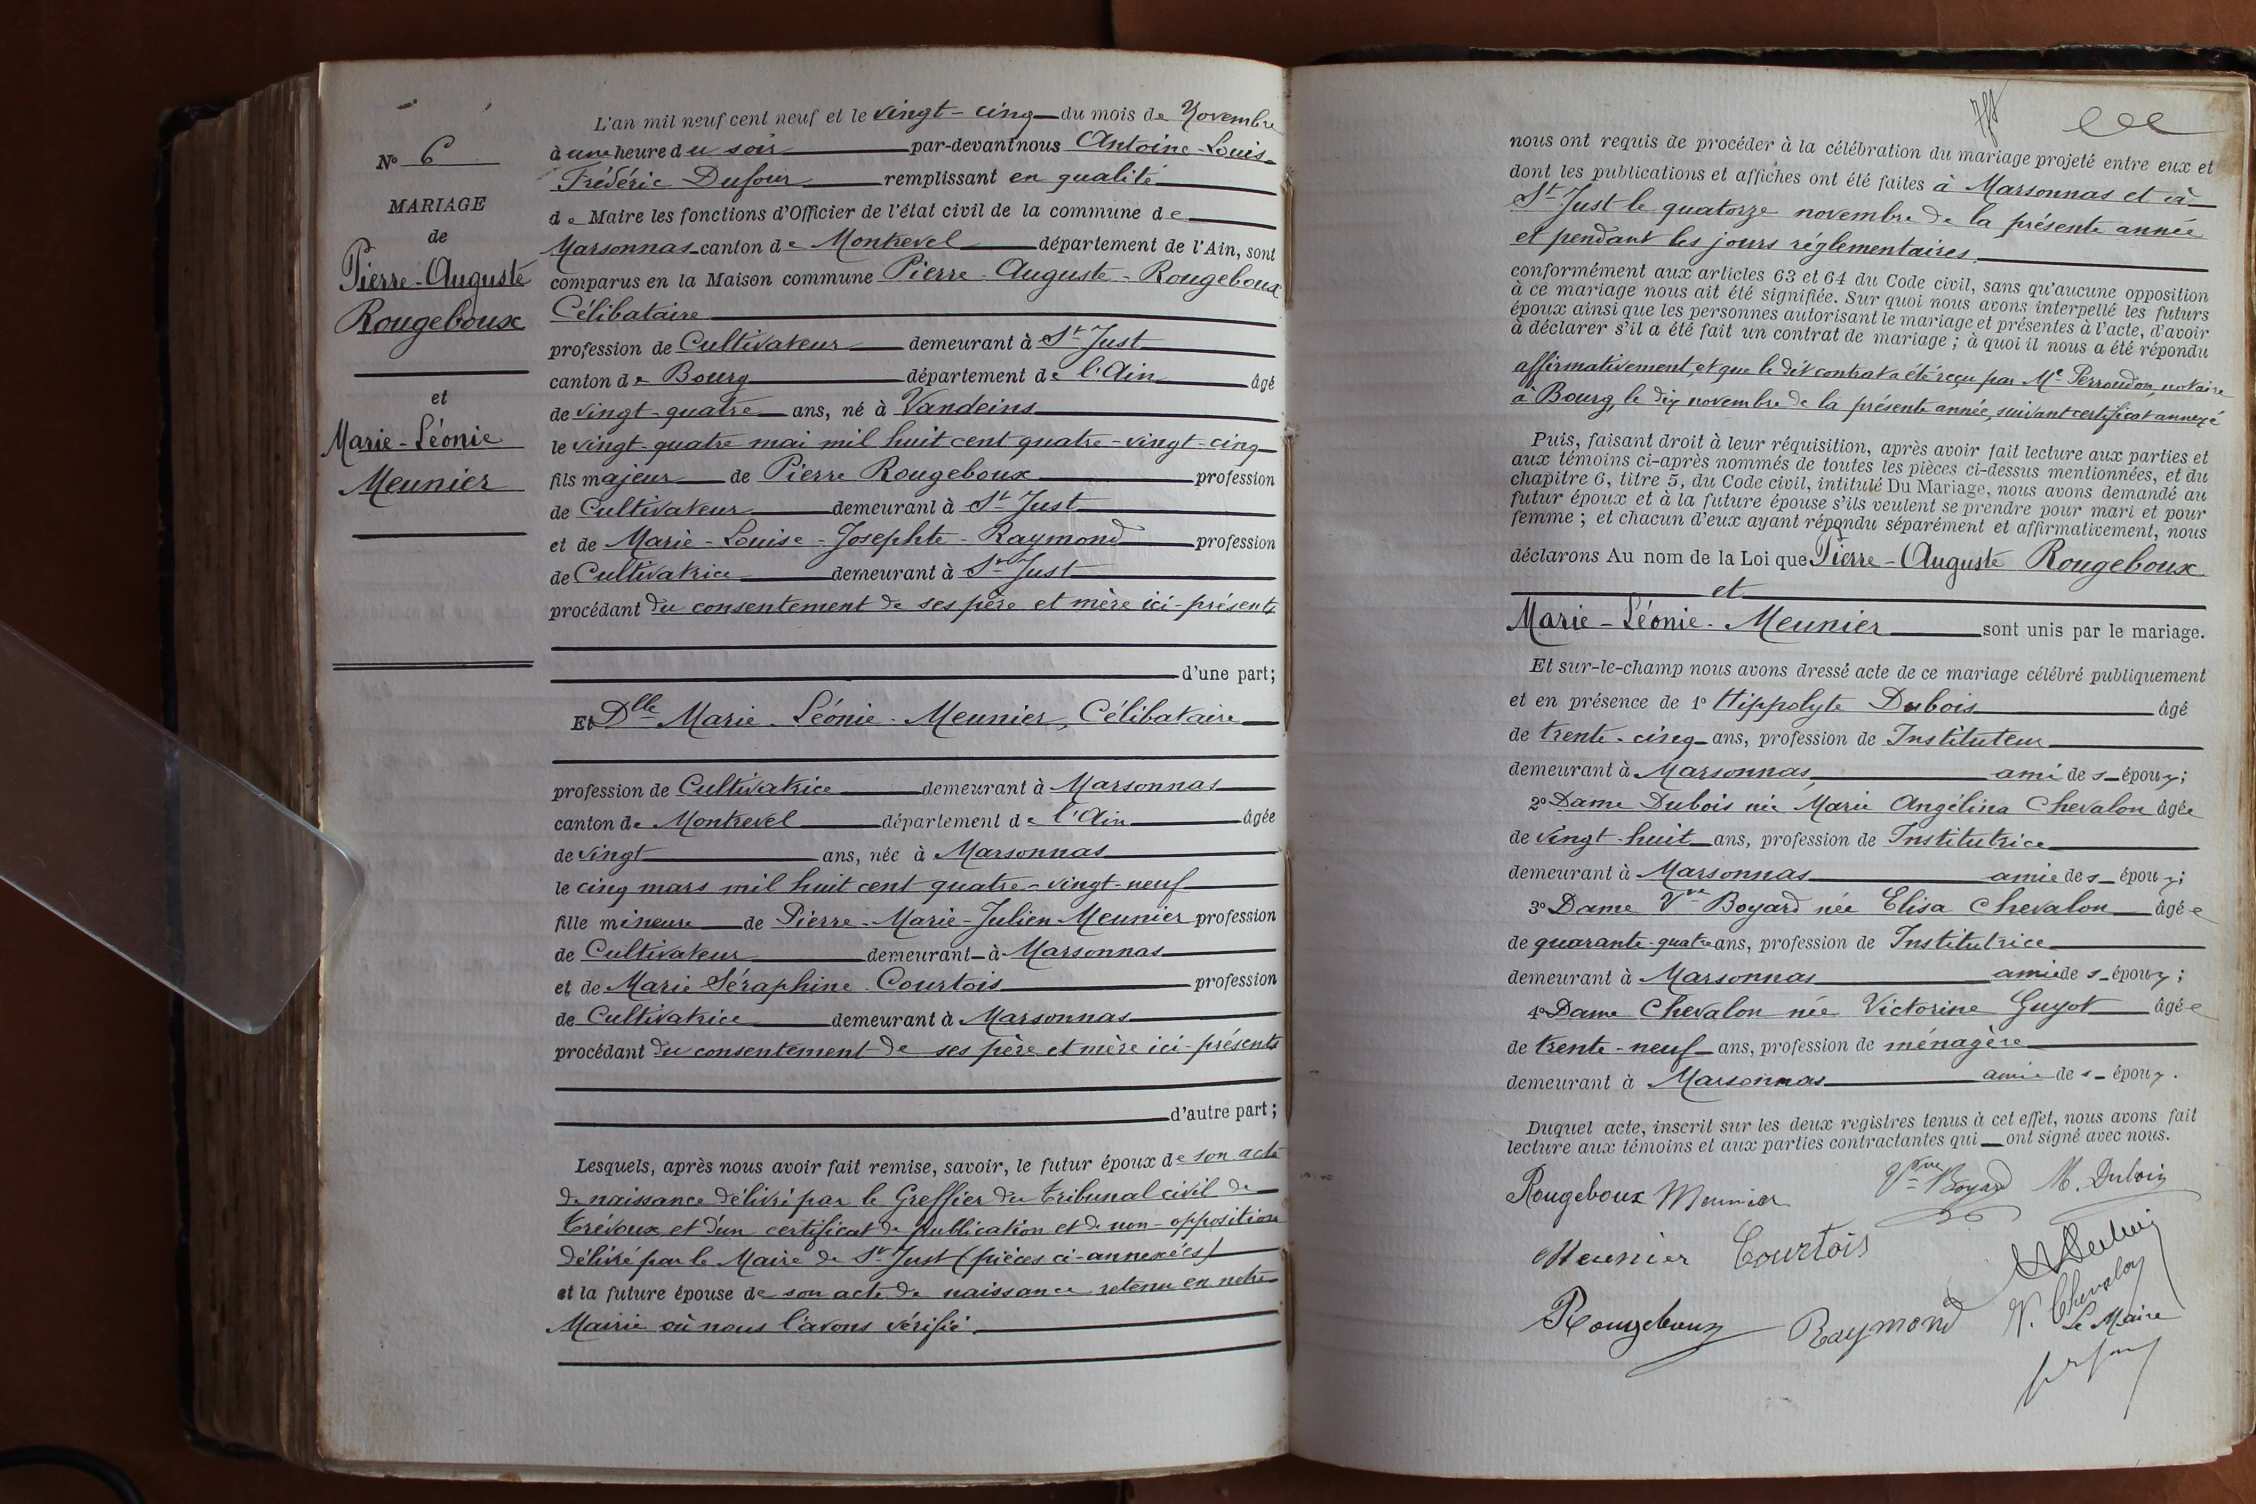 N° 6
MARIAGE
de
Pierre-Auguste
Rougeboux
et
Marie-Léonie
Meunier
L'an mil neuf cent neuf et le vingt-cinq du mois de Novembre
à une heure du soir par-devant nous Antoine-Louis-
Frédéric Dufour remplissant en qualité
de Maire les fonctions d'Officier de l'état civil de la commune de
Marsonnas canton de Montrevel département de l'Ain, sont
comparus en la Maison commune Pierre-Auguste-Rougeboux
Célibataire
profession de Cultivateur demeurant à St Just
canton de Bourg département de l'Ain âgé
de vingt-quatre ans, né à Vandeins
le vingt-quatre mai mil huit cent quatre-vingt-cinq
fils majeur de Pierre Rougeboux profession
de Cultivateur demeurant à St Just
et de Marie-Louise-Josephte-Raymond profession
de Cultivatrice demeurant à St Just
procédant du consentement de ses père et mère ici-présents
d'une part;
Et Dlle Marie-Léonie-Meunier, Célibataire
profession de Cultivatrice demeurant à Marsonnas
canton de Montrevel département de l'Ain âgée
de vingt ans, née à Marsonnas
le cinq mars mil huit cent quatre-vingt-neuf
fille mineure de Pierre-Marie-Julien Meunier profession
de Cultivateur demeurant à Marsonnas
et de Marie Séraphine Courtois profession
de Cultivatrice demeurant à Marsonnas
procédant du consentement de ses père et mère ici-présents
d'autre part;
Lesquels, après nous avoir fait remise, savoir, le futur époux de son acte
de naissance délivré par le Greffier du Tribunal civil de
Trévoux et d'un certificat de publication et de non-opposition
délivré par le Maire de St Just (pièces ci-annexées)
et la future épouse de son acte de naissance retenu en notre
Mairie où nous l'avons vérifié.
nous ont requis de procéder à la célébration du mariage projeté entre eux et
dont les publications et affiches ont été faites à Marsonnas et à
St Just le quatorze novembre de la présente année
et pendant les jours réglementaires.
conformément aux articles 63 et 64 du Code civil, sans qu'aucune opposition
à ce mariage nous ait été signifiée. Sur quoi nous avons interpellé les futurs
époux ainsi que les personnes autorisant le mariage et présentes à l'acte, d'avoir
à déclarer s'il a été fait un contrat de mariage; à quoi il nous a été répondu
affirmativement, et que le dit contrat a été reçu par Me Perroudon, notaire
à Bourg, le dix novembre de la présente année, suivant certificat annexé
Puis, faisant droit à leur réquisition, après avoir fait lecture aux parties et
aux témoins ci-après nommés de toutes les pièces ci-dessus mentionnées, et du
chapitre 6, titre 5, du Code civil, intitulé Du Mariage, nous avons demandé au
futur époux et à la future épouse s'ils veulent se prendre pour mari et pour
femme; et chacun d'eux ayant répondu séparément et affirmativement, nous
déclarons Au nom de la Loi que Pierre-Auguste Rougeboux
et
Marie-Léonie-Meunier sont unis par le mariage.
Et sur-le-champ nous avons dressé acte de ce mariage célébré publiquement
et en présence de 1° Hippolyte Dubois âgé
de trente-cinq ans, profession de Instituteur
demeurant à Marsonnas, ami des époux;
2° Dame Dubois née Marie Angélina Chevalon âgée
de vingt-huit ans, profession de Institutrice
demeurant à Marsonnas amie des époux;
3° Dame Vve Boyard née Elisa Chevalon âgée
de quarante-quatre ans, profession de Institutrice
demeurant à Marsonnas amie des époux;
4° Dame Chevalon née Victorine Guyot âgée
de trente-neuf ans, profession de ménagère
demeurant à Marsonnas amie des époux.
Duquel acte, inscrit sur les deux registres tenus à cet effet, nous avons fait
lecture aux témoins et aux parties contractantes qui ont signé avec nous.
Rougeboux Meunier Vve Boyard M. Dubois
Meunier Courtois
V. Chevalon
Rougeboux Raymond Le Maire